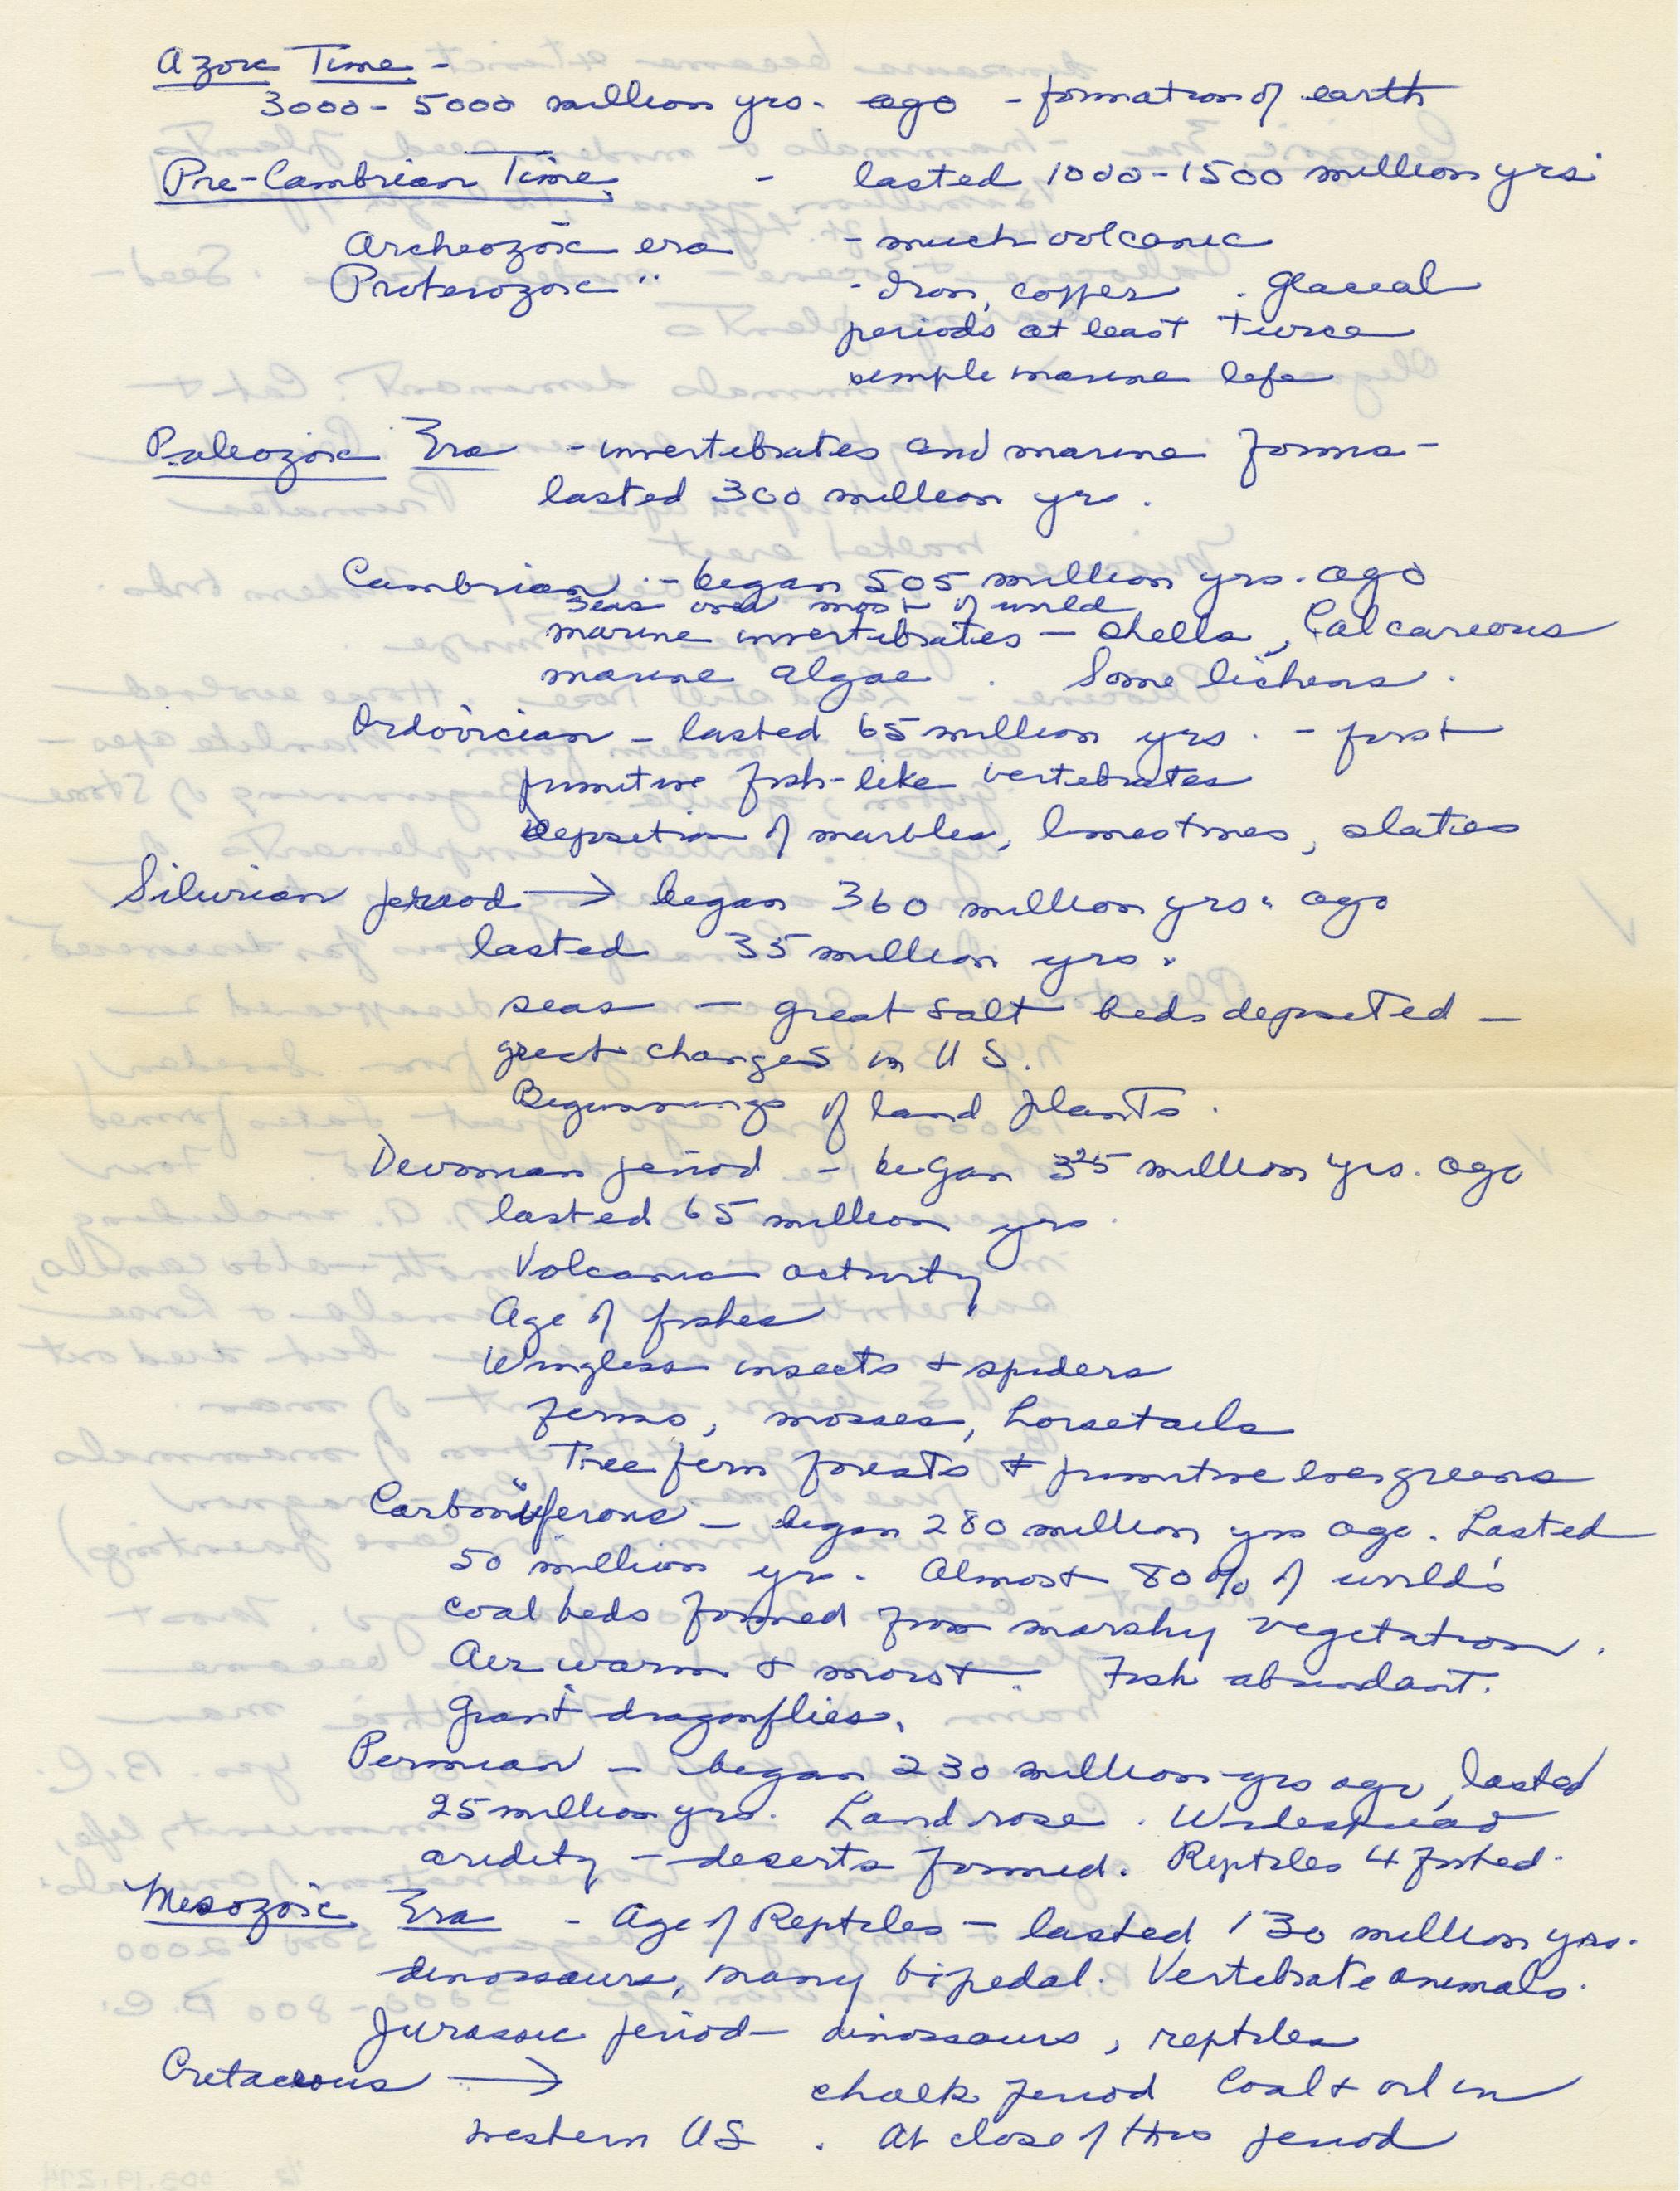 Azoic Time -
3000 - 5000 million yrs. ago - formation of earth
Pre-Cambrian Time - lasted 1000-1500 million yrs.
Archeozoic era - much volcanic
Proterozoic " - Iron, copper . Glacial
periods at least twice
simple marine life
Paleozoic Era - invertebrates and marine forms -
lasted 300 million yrs.
Cambrian - began 505 million yrs. ago
seas over most of world
marine invertebrates - shells, Calcareous
marine algae . Some lichens.
Ordovician - lasted 65 million yrs. - first
primitive fish-like vertebrates
deposition of marbles, limestones, slates
Silurian period → began 360 million yrs. ago
lasted 35 million yrs.
seas - great salt beds deposited -
great changes in U S.
Beginnings of land plants.
Devonian period - began 325 million yrs. ago
lasted 65 million yrs.
Volcanic activity
Age of fishes
Wingless insects + spiders
ferns, mosses, horsetails
Tree fern forests + primitive evergreens
Carboniferous - began 280 million yrs ago. Lasted
50 million yrs. Almost 80% of world's
coal beds formed from marshy vegetation.
Air warm & moist. Fish abundant.
Giant dragonflies.
Permian - began 230 million yrs ago, lasted
25 million yrs. Land rose. Widespread
aridity - deserts formed. Reptiles 4 footed.
Mesozoic Era - Age of Reptiles - lasted 130 million yrs.
dinossaurs, many bipedal. Vertebrate animals.
Jurassic period - dinossaurs, reptiles
Cretaceous → chalk period Coal & oil in
western US . At close of this period